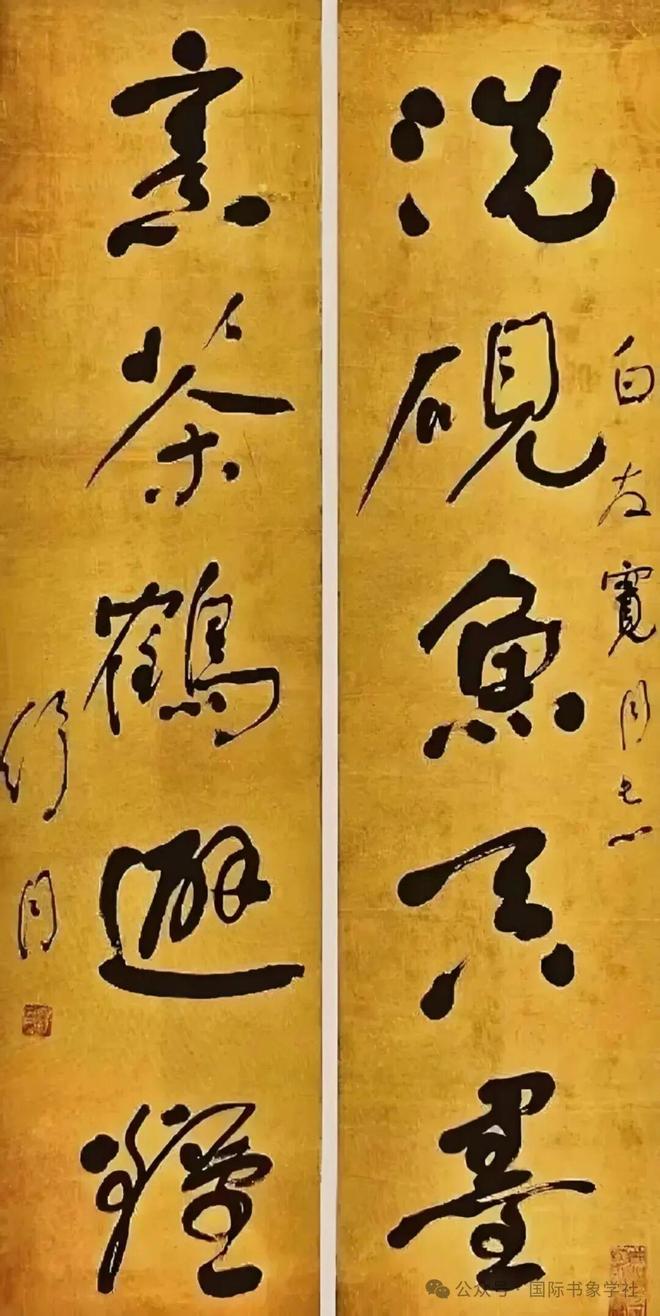 白友寬同志
洗硯魚吞墨
烹茶鶴避煙
舒同
公众号·国际书象学社